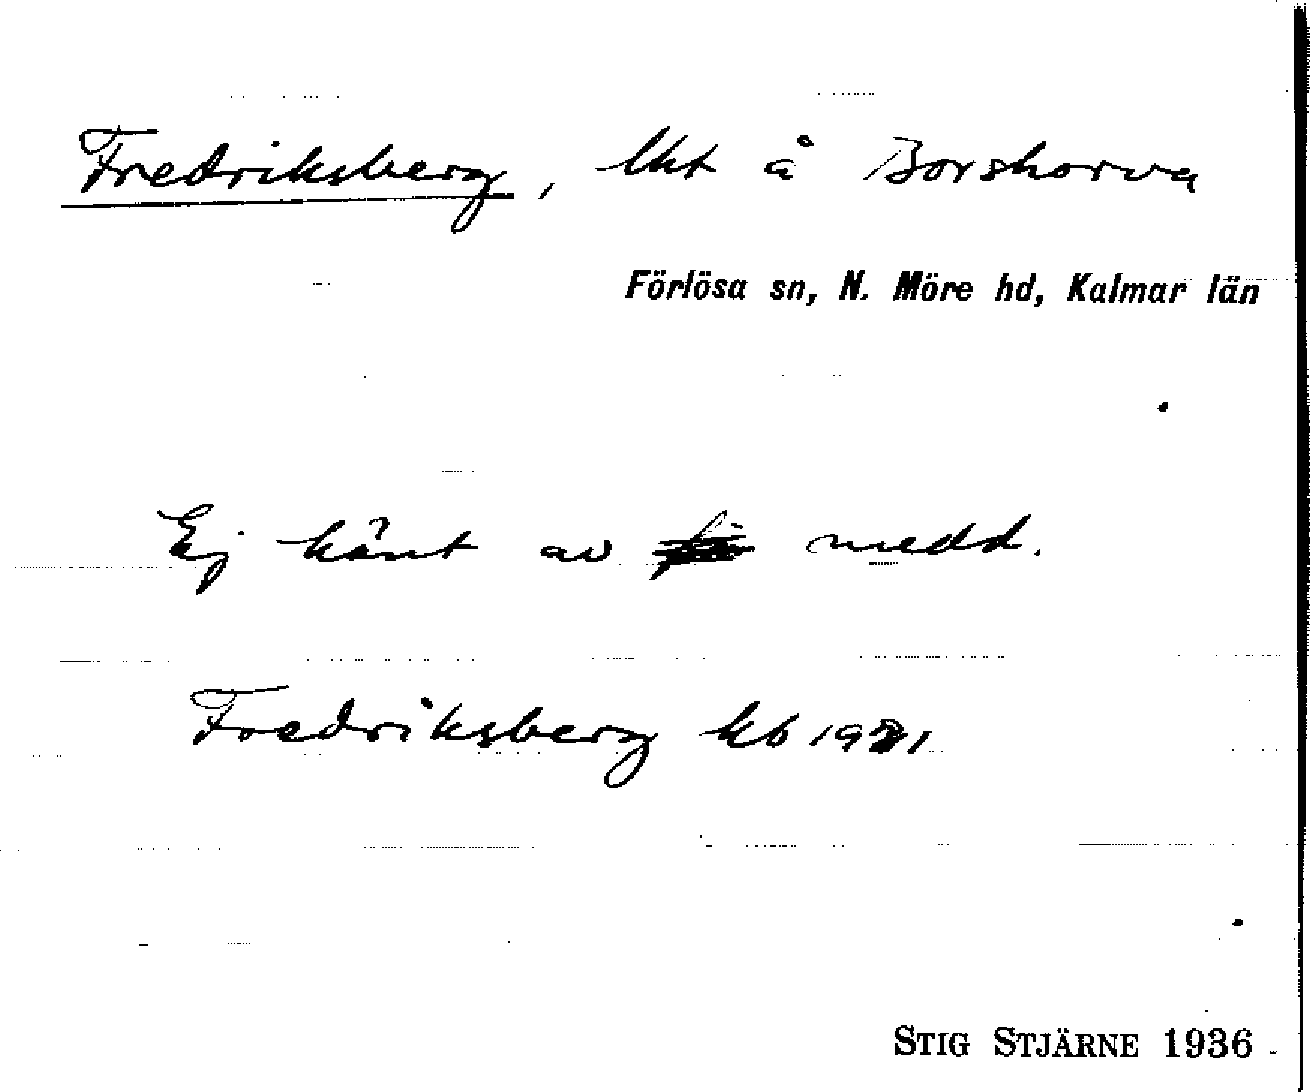 Fredriksberg, lht å Borshorva
Förlösa sn, N. Möre hd, Kalmar län
Ej känt av medd.
Fredriksberg kb 1931
STIG STJÄRNE 1936